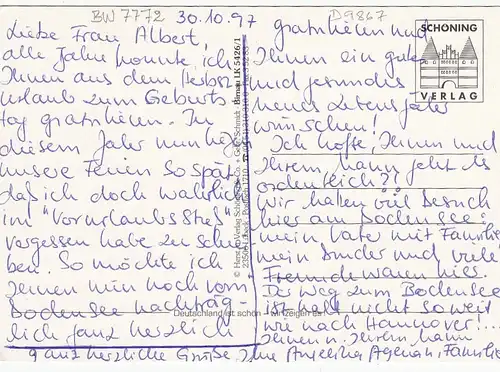 BW 7772
30.10.97
D9867
Liebe Frau Albert,
alle Jahre konnte ich
Ihnen aus dem Herbst-
urlaub zum Geburts-
tag gratulieren. In
diesem Jahr nun liegen
unsere Ferien so spät,
daß ich doch wahrlich
im "Vorurlaubsstreß"
vergessen habe zu schrei-
ben. So möchte ich
Ihnen nun noch vom
Bodensee nachträg-
lich ganz herzlich
gratulieren und
Ihnen ein gutes
und gesundes
neues Lebensjahr
wünschen!
Ich hoffe, Ihnen und
Ihrem Mann geht es
ordentlich??
Wir haben viel Besuch
hier am Bodensee:
mein Vater mit Familie,
mein Bruder und viele
Freunde waren hier.
Der Weg zum Bodensee
ist halt nicht so weit
wie nach Hannover!...
Ihnen u. Ihrem Mann
ganz herzliche Grüße, Ihre Angelika
Familie
SCHÖNING
VERLAG
Deutschland ist schön - wir zeigen es!